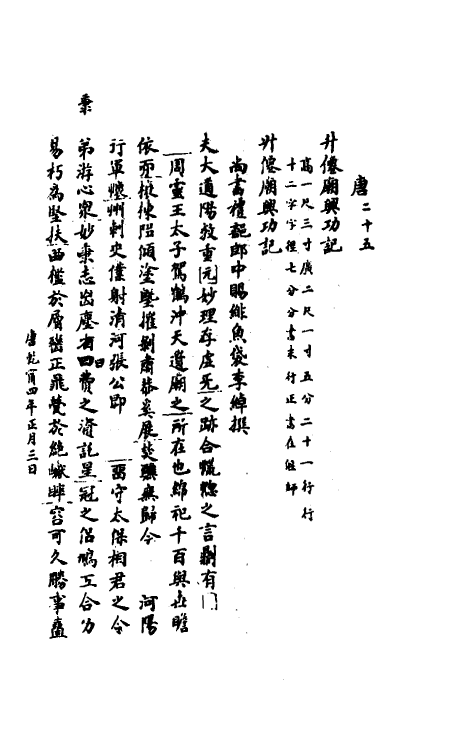 唐二十五
升僊廟興功記
高一尺三寸廣二尺一寸五分二十一行行
十二字字徑七分分書末行正書在偃師
升僊廟興功記
尚書禮部郎中賜緋魚袋李綽撰
夫大道陽教重元妙理存虛无之跡合慌惚之言剬有
周靈王太子駕鶴冲天遺廟之所在也緱祀千百與世瞻
依而榱棟陷傾塗墍摧剝肅恭奚展焚 無歸今 河陽
行軍懷州刺史僕射清河張公即 留守太保相君之令
弟游心衆妙秉志出塵有曰費之資託星冠之侶鳩工合力
秉
易朽為堅扶曲檻於層 正飛甍於絶巘睟容可久勝事盍
唐乾甯四年正月三日